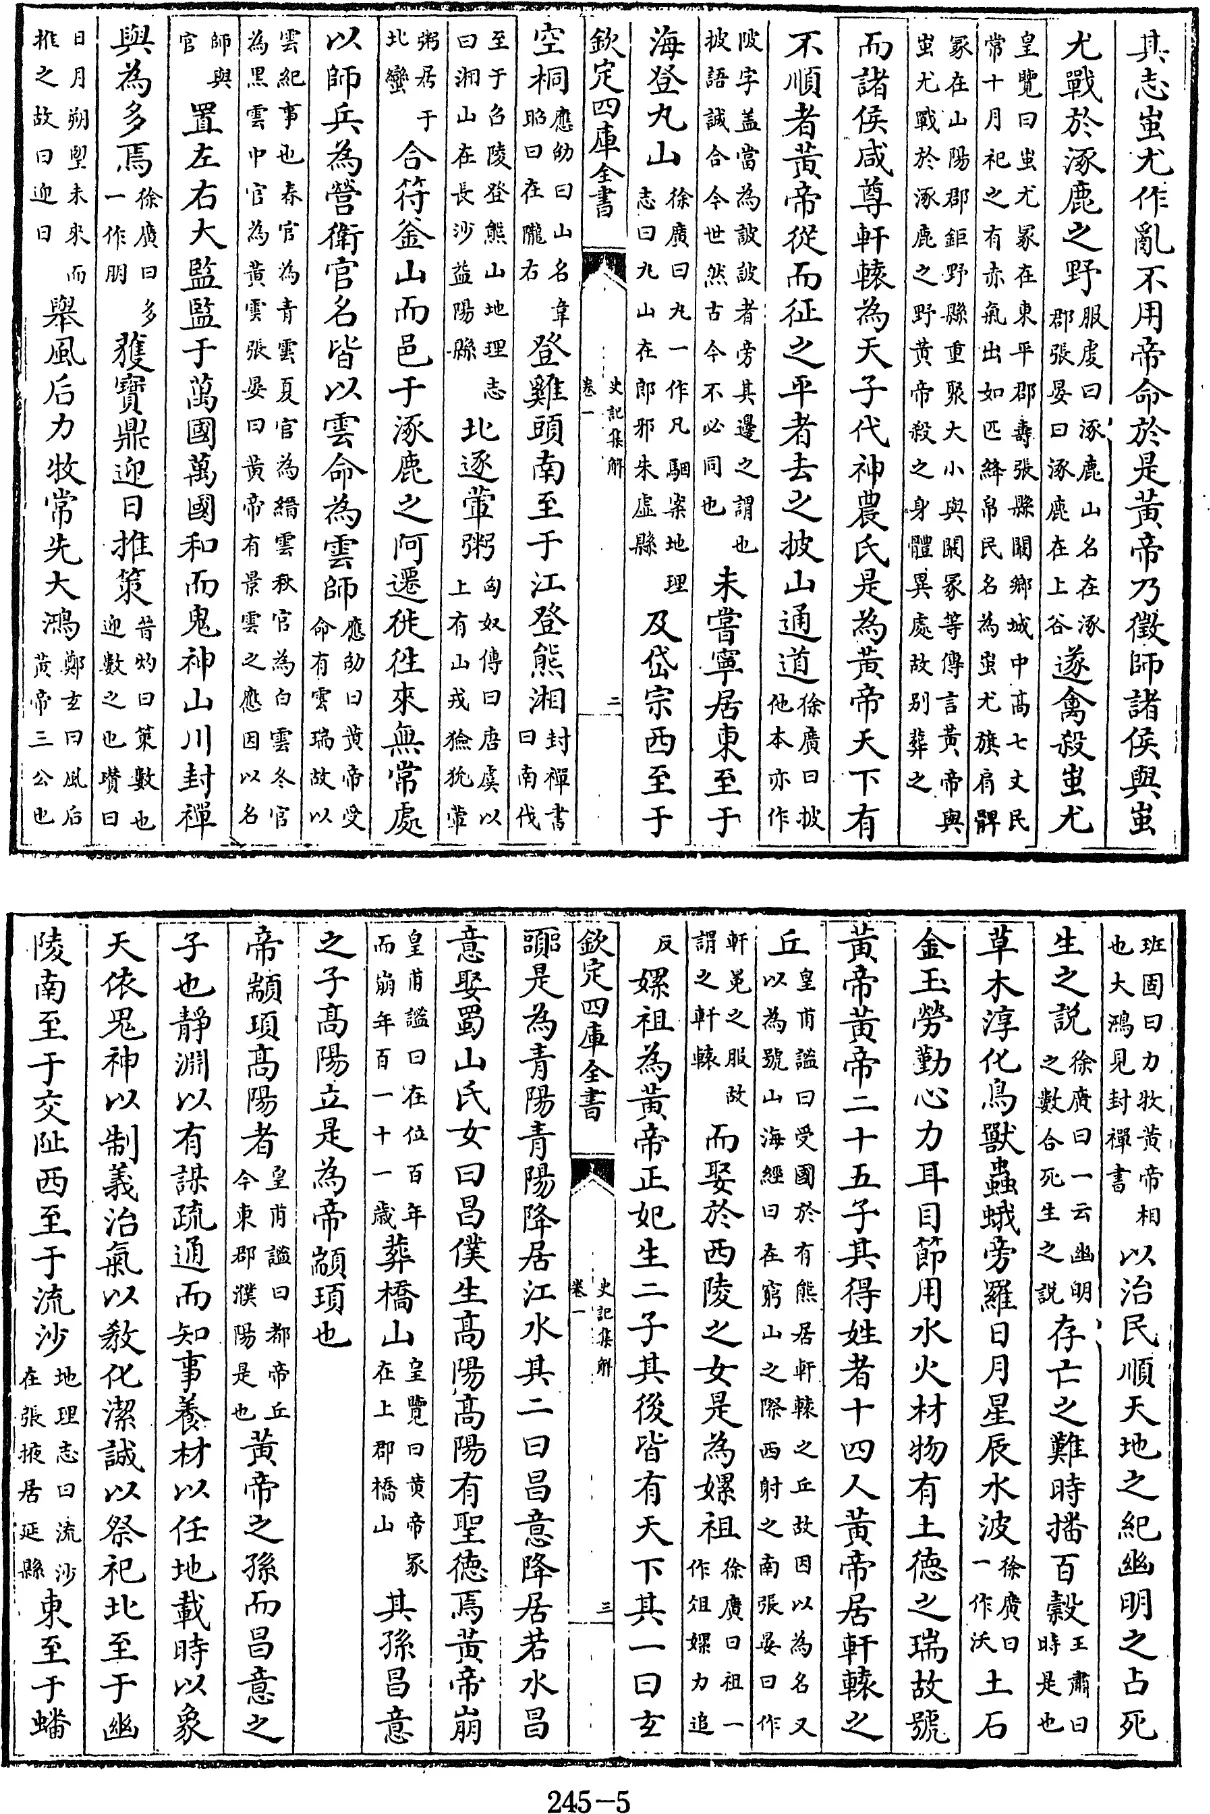 其志蚩尤作亂不用帝命於是黃帝乃徵師諸侯與蚩
尤戰於涿鹿之野服虔曰涿鹿山名在涿郡張晏曰涿鹿在上谷遂禽殺蚩尤
皇覽曰蚩尤冢在東平郡壽張縣闞鄉城中高七丈民常十月祀之有赤氣出如匹絳帛民名為蚩尤旗肩髀
冢在山陽郡鉅野縣重聚大小與闞冢等傳言黃帝與蚩尤戰於涿鹿之野黃帝殺之身體異處故别葬之
而諸侯咸尊軒轅為天子代神農氏是為黃帝天下有
不順者黃帝從而征之平者去之披山通道徐廣曰披他本亦作
陂字蓋當為詖詖者旁其邊之謂也披語誠合今世然古今不必同也未嘗寧居東至于
海登丸山徐廣曰丸一作凡駰案地理志曰丸山在郎邪朱虛縣及岱宗西至于
欽定四庫全書
史記集解
卷一
二
空桐應劭曰山名韋昭曰在隴右登雞頭南至于江登熊湘封禪書曰南伐
至于召陵登熊山地理志曰湘山在長沙益陽縣北逐葷粥匈奴傳曰唐虞以上有山戎獫狁葷
粥居于北蠻合符釜山而邑于涿鹿之阿遷徙徃來無常處
以師兵為營衛官名皆以雲命為雲師應劭曰黄帝受命有雲瑞故以
雲紀事也春官為青雲夏官為縉雲秋官為白雲冬官為黑雲中官為黃雲張晏曰黄帝有景雲之應因以名
師與官置左右大監監于萬國萬國和而鬼神山川封禪
與為多焉徐廣曰多一作朋獲寶鼎迎日推策晉灼曰策數也迎數之也瓚曰
日月朔望未來而推之故曰迎日舉風后力牧常先大鴻鄭玄曰風后黃帝三公也
班固曰力牧黃帝相也大鴻見封禪書以治民順天地之紀幽明之占死
生之説徐廣曰一云幽明之數合死生之説存亡之難時播百穀王肅曰時是也
草木淳化鳥獸蟲蛾旁羅日月星辰水波徐廣曰一作沃土石
金玉勞勤心力耳目節用水火材物有土德之瑞故號
黃帝黃帝二十五子其得姓者十四人黃帝居軒轅之
丘皇甫謐曰受國於有熊居軒轅之丘故因以為名又以為號山海經曰在窮山之際西射之南張晏曰作
軒冕之服故謂之軒轅而娶於西陵之女是為嫘祖徐廣曰祖一作俎嫘力追
反嫘祖為黃帝正妃生二子其後皆有天下其一曰玄
欽定四庫全書
史記集解
卷一
三
囂是為青陽青陽降居江水其二曰昌意降居若水昌
意娶蜀山氏女曰昌僕生高陽高陽有聖德焉黃帝崩
皇甫謐曰在位百年而崩年百一十一歲葬橋山皇覽曰黃帝冢在上郡橋山其孫昌意
之子高陽立是為帝顓頊也
帝顓頊高陽者皇甫謐曰都帝丘今東郡濮陽是也黃帝之孫而昌意之
子也靜淵以有謀疏通而知事養材以任地載時以象
天依鬼神以制義治氣以敎化潔誠以祭祀北至于幽
陵南至于交阯西至于流沙地理志曰流沙在張掖居延縣東至于蟠
245-5